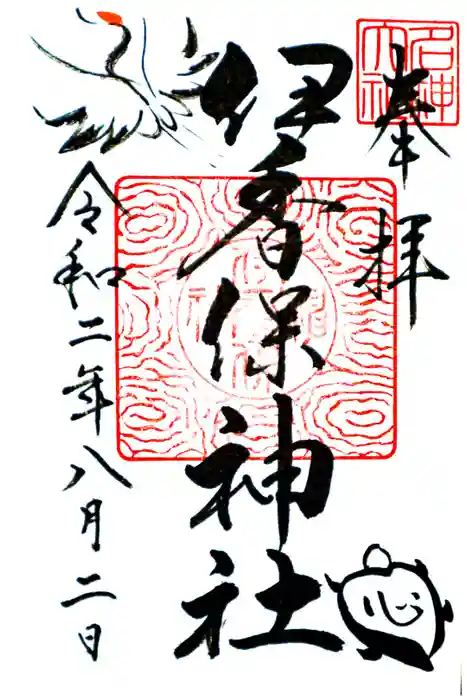 奉拝
名神大社
伊香保神社
令和二年八月二日
心